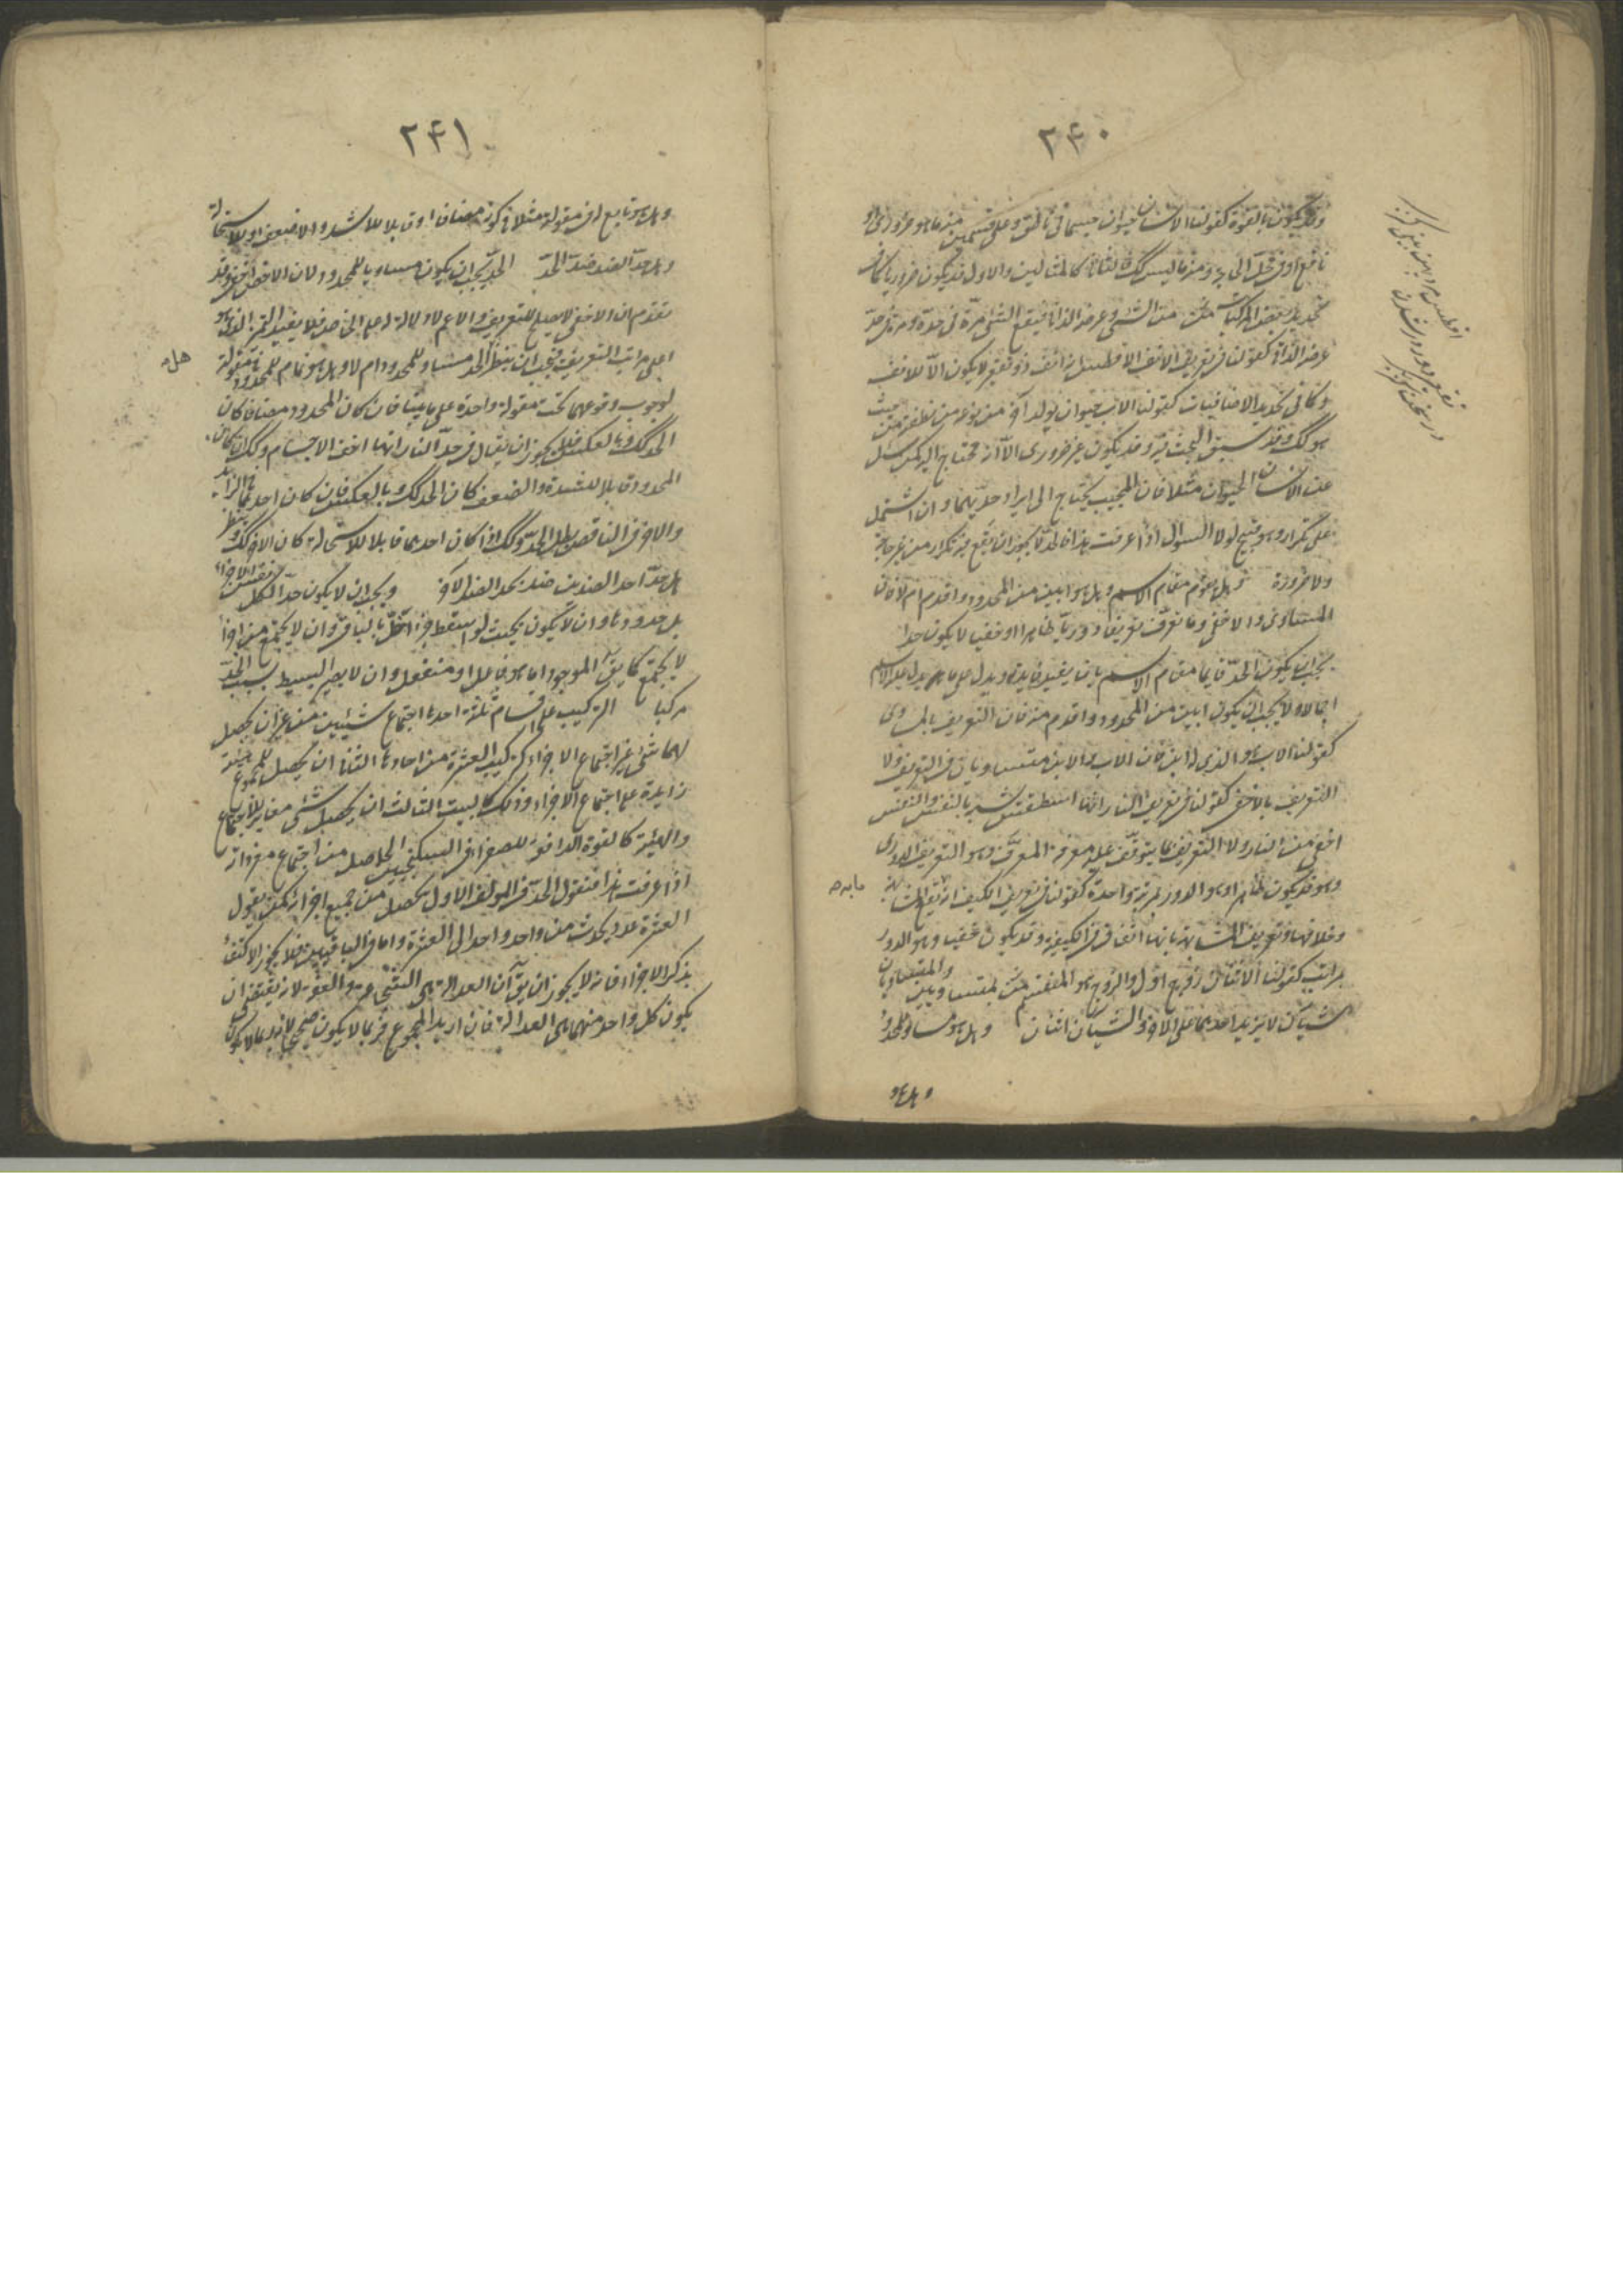 ٢۴٠
وقد يكون بالقوة كقولنا الانسان حيوان جسمانى ناطق وعلى قسمين منه ما هو ضرورى او
نافع او فى محل الحاجة ومنه ما ليس كذلك الثانى كالمثالين والاول قد يكون ضروريا كما فى
تحديد بعض المركبات من الشىء وعرضه الذاتى فيقع الشىء مرة فى حده ومرة فى حد
عرضه الذاتى كقولنا فى تعريف الانف الافطس انه انف ذو تقعير لا يكون الا للانف
وكما فى تحديد الاضافيات كقولنا الاب حيوان يولد آخر من نوعه من نطفته من حيث
هو كك وقد سبق البحث فيه وقد يكون غير ضرورى الا انه محتاج اليه كمن سئل
عن الانسان الحيوان مثلا فان المجيب يحتاج الى ايراد حديهما وان اشتمل
على تكرار وهو قبيح لولا السؤال اذا عرفت هذا فالحد لا يجوز ان يقع فيه تكرار من غير حاجة
ولا ضرورة وهل يقوم مقام الاسم وهل هو ابين من المحدود واقدم ام لا فان
المتساوى والاخفى وما تعرف تعريفا دوريا ظاهرا او خفيا لا يكون حدا
يجب ان يكون الحد قايما مقام الاسم بان يفيد فايدته ويدل على ما يدل عليه الاسم
اجمالا ولا يجب ان يكون ابين من المحدود واقدم منه فان التعريف بالمساوى
كقولنا الاب هو الذى له ابن فان الاب والابن متساويان فى التعريف ولا
التعريف بالاخفى كقولنا فى تعريف النار انها اسطقس شبيه بالنفس والنفس
اخفى من النار ولا التعريف بما يتوقف عليه معرفة المعرف وهو التعريف الدورى
وهو قد يكون ظاهرا وهو الدور بمرتبة واحدة كقولنا فى تعريف الكيف انه تقع المشابهة
وخلافها وتعريف المشابهة بانها اتفاق فى الكيفية وقد يكون خفيا وهو الدور
بمراتب كقولنا الاثنان زوج اول والزوج هو المنقسم بمتساويين والمتساويان
شيئان لا يزيد احدهما على الاخر والشيئان اثنان وهل هو مساو للمحدود
وهل هو
٢۴١
وهل هو تابع له فى مقولة مثلا فى كونه مضافا او قابلا للاشد والاضعف او للاستحالة
وهل حد الضد ضد الحد الحد يجب ان يكون مساويا للمحدود لان الاخص اخفى وقد
تقدم ان الاخفى لا يصلح للتعريف والاعم لا دلالة له على الخاص فلا يفيد التميز الذى هو
اعلى مراتب التعريف فيجب ان ينظر الحد مساو للمحدود ام لا وهل هو تمام للمحدود فى مقولة
لوجوب وقوعهما تحت مقولة واحدة على ما بينا فان كان المحدود مضافا كان
الحد كك وبالعكس فلا يجوز ان يقال فى حد النار انها اخف الاجسام وكك ان كان
المحدود قابلا للشدة والضعف كان الحد كك وبالعكس فان كان احدهما فى الزايد
والاخر فى الناقص بطل الحد وكك اذا كان احدهما قابلا للاستحالة كان الاخر كك وينظر
هل حد احد الضدين ضد لحد الضد الاخر ويجب ان لا يكون حد الكل نفس الاجزاء
بل حدودها وان لا يكون بحيث لو اسقط جزء اخل بالباقى وان لا يجتمع من اجزاء
لا يجتمع كما يق الموجود اما هو فاعل او منفعل وان لا يصير البسيط بسبب الحد
مركبا التركيب على اقسام ثلثة احدها اجتماع شيئين من غير ان يحصل
لهما شىء غير اجتماع الاجزاء كتركيب العشرة من احادها الثانى ان يحصل للمجموع هيئة
زايدة على اجتماع الاجزاء وذلك كالبيت الثالث ان يحصل شىء مغاير للاجتماع
والهيئة كالقوة الدافعة للصفرا فى السكنجبين الحاصل من اجتماع مفرداته
اذا عرفت هذا فنقول الحد فى المولف الاول يحصل من جميع اجزائه كمن يقول
العشرة عدد يحدث من واحد واحد الى العشرة واما فى الباقيين فلا يجوز الاكتفاء
بذكر الاجزاء فانه لا يجوز ان يق ان العدالة هى الشجاعة والعفة لانه يقتضى ان
يكون كل واحد منهما هى العدالة فان اريد المجموع فربما لا يكون صحيحا